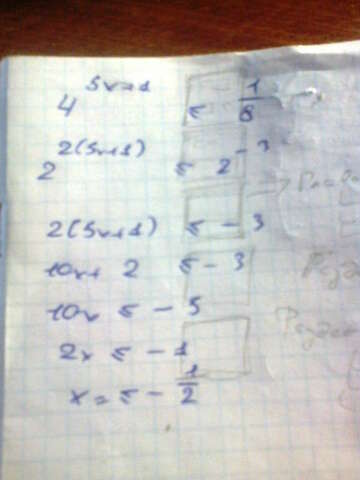 4^{5x+1} ≤ \frac{1}{8}
2^{2(5x+1)} ≤ 2^{-3}
2(5x+1) ≤ -3
10x+2 ≤ -3
10x ≤ -5
2x ≤ -1
x = ≤ -\frac{1}{2}